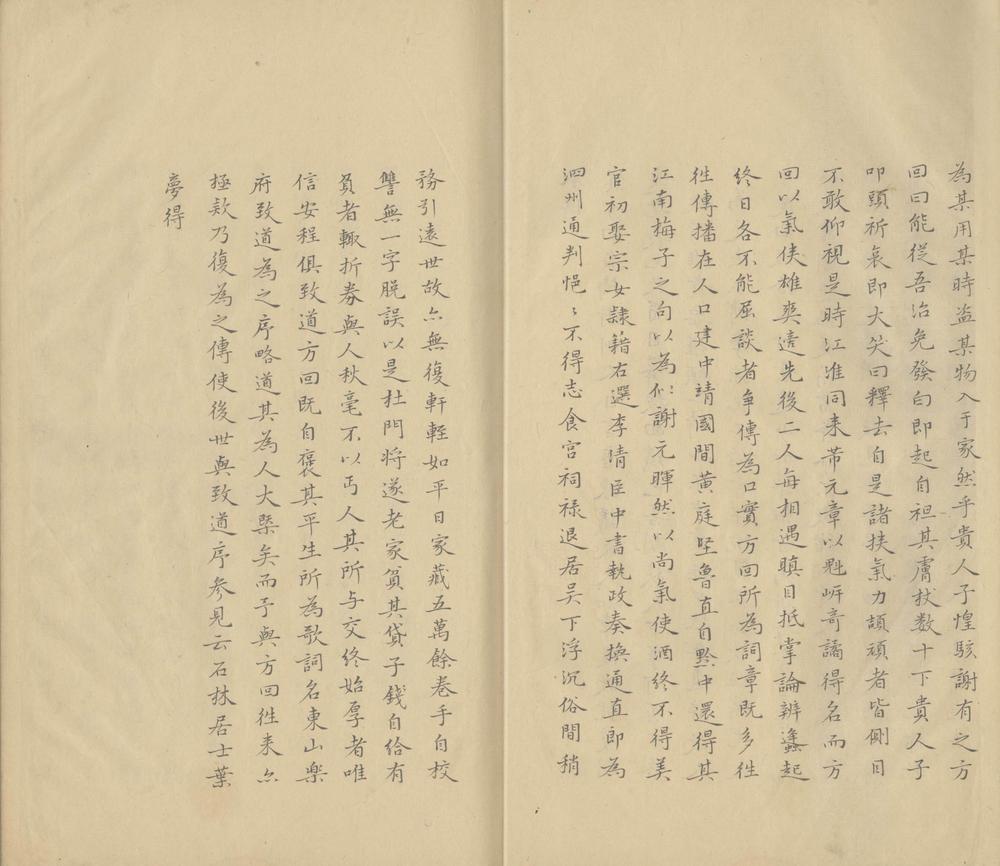 為某用某時盜某物入于家然乎貴人子惶駭謝有之方
回曰能從吾治免發白即起自袒其膚杖数十下貴人子
叩頭祈哀即大笑曰釋去自是諸挟氣力頡頏者皆側目
不敢仰視是時江淮間米芾元章以魁岸奇譎得名而方
回以氣俠雄爽適先後二人每相遇瞋目抵掌論辨蠭起
終日各不能屈談者争傳為口實方回所為詞章既多徃
徃傳播在人口建中請國間黄庭堅魯直自黔中還得其
江南梅子之句以為似謝元暉然以尚氣使酒終不得美
官初娶宗女隷籍右選李清臣中書執政奏換通直即為
泗州通判悒〻不得志食宫祠禄退居吴下浮沉俗間稍
務引遠世故亦無復軒輊如平日家藏五萬餘卷手自校
讐無一字脱誤以是杜門将遂老家貧其貸子錢自給有
負者輙折券與人秋毫不以丐人其所与交終始厚者唯
信安程俱致道方回既自裒其平生所為歌詞名東山樂
府致道為之序略道其為人大槩矣而予與方回徃来亦
極欵乃復為之傳使後世與致道序參見云石林居士葉
夢得